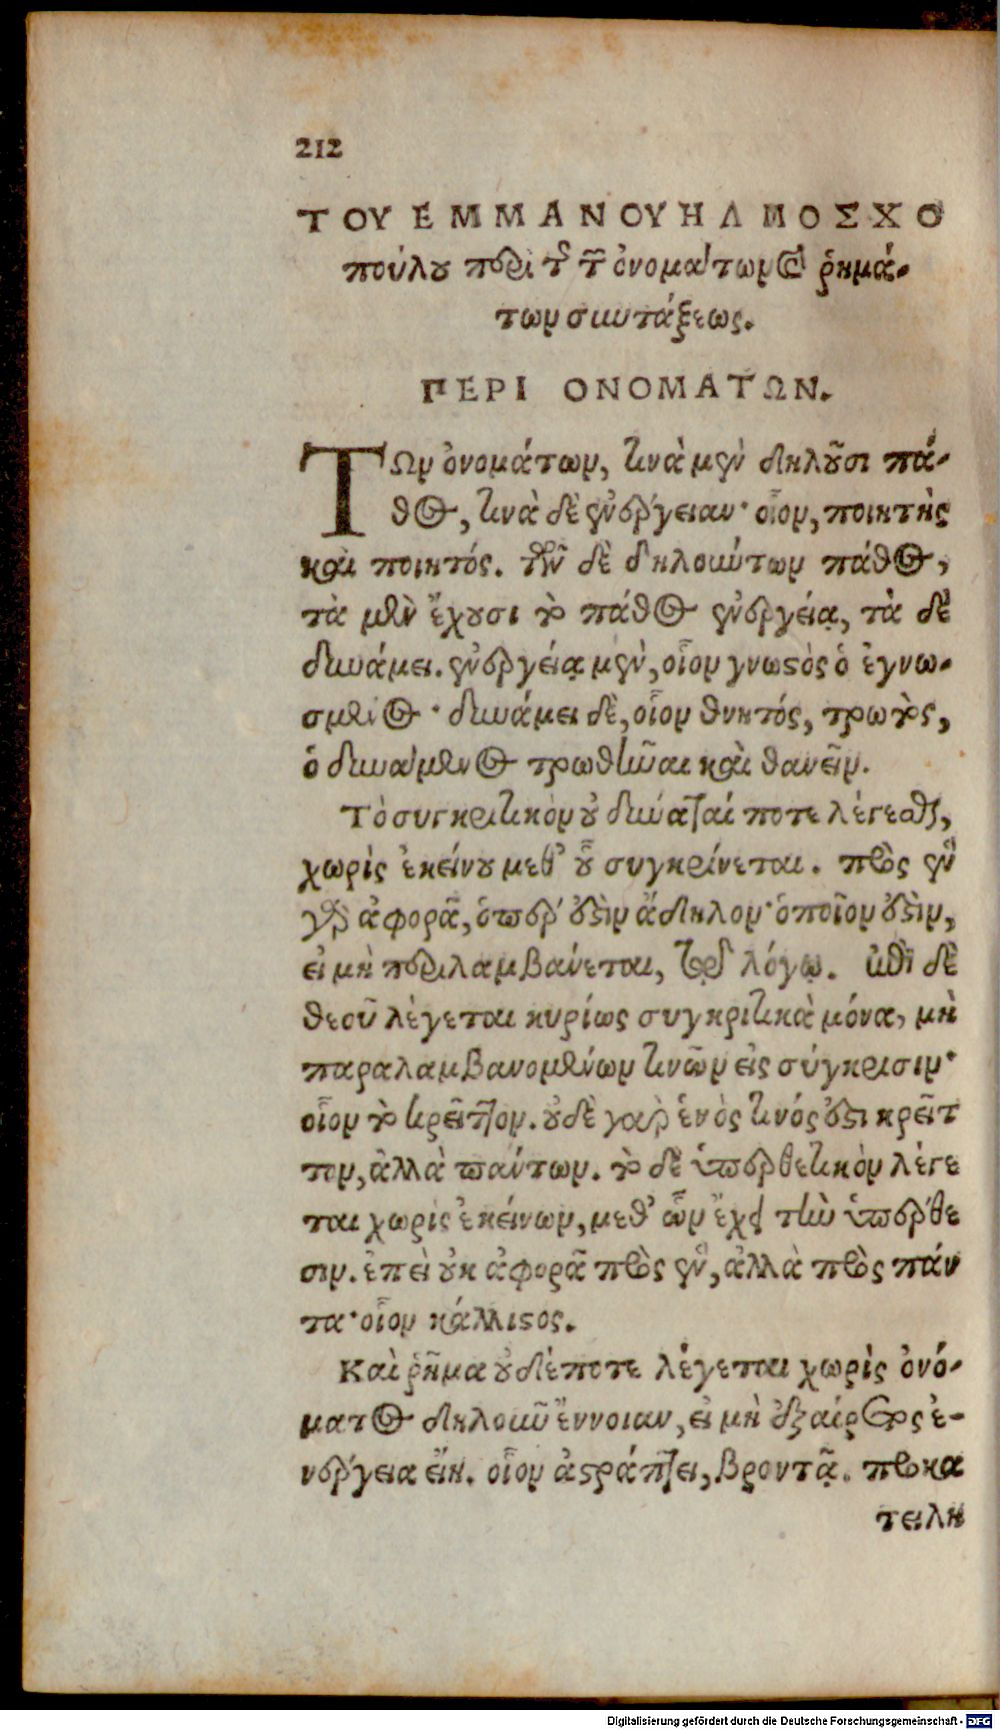 212
ΤΟΥ ΕΜΜΑΝΟΥΗΛ ΜΟΣΧΟ
πούλου περὶ τῆς τῶν ὀνομάτων καὶ ῥημά-
των συντάξεως.
ΠΕΡΙ ΟΝΟΜΑΤΩΝ.
ΤΩν ὀνομάτων, τινὰ μὲν δηλοῦσι πά-
θος, τινὰ δὲ ἐνέργειαν· οἷον, ποιητὴς
καὶ ποιητός. τῶν δὲ δηλούντων πάθος,
τὰ μὲν ἔχουσι τὸ πάθος ἐνεργείᾳ, τὰ δὲ
δυνάμει. ἐνεργείᾳ μὲν, οἷον γνωστὸς ὁ ἐγνω-
σμένος· δυνάμει δὲ, οἷον θνητός, τρωτὸς,
ὁ δυνάμενος τρωθῆναι καὶ θανεῖν.
Τὸ συγκριτικὸν οὐ δύναταί ποτε λέγεσθαι,
χωρὶς ἐκείνου μεθ' οὗ συγκρίνεται. πρὸς ἓν
γὰρ ἀφορᾷ, ὅπερ ἐστὶν ἄδηλον· ὁποῖον ἐστὶν,
εἰ μὴ περιλαμβάνεται, τῷ λόγῳ. ἐπὶ δὲ
θεοῦ λέγεται κυρίως συγκριτικὰ μόνα, μὴ
παραλαμβανομένων τινῶν εἰς σύγκρισιν·
οἷον τὸ κρεῖττον. οὐδὲ γὰρ ἑνὸς τινός ἐστι κρεῖτ
τον, ἀλλὰ πάντων. τὸ δὲ ὑπερθετικὸν λέγε
ται χωρὶς ἐκείνων, μεθ' ὧν ἔχει τὴν ὑπέρθε
σιν. ἐπεὶ οὐκ ἀφορᾷ πρὸς ἓν, ἀλλὰ πρὸς πάν
τα· οἷον κάλλιστος.
Καὶ ῥῆμα οὐδέποτε λέγεται χωρὶς ὀνό-
ματος δηλοῦν ἔννοιαν, εἰ μὴ ἐξαίρετος ἐ-
νέργεια εἴη. οἷον ἀστράπτει, βροντᾷ. προκα
τειλη
Digitalisierung gefördert durch die Deutsche Forschungsgemeinschaft - DFG